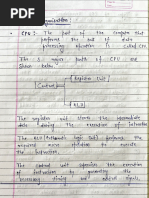 Organization
CPU : The part of the computer that
performs the bulk of data
processing operation is called CPU
The 3 major parts of CPU are
Shown below
Register Unit
Control
ALU
The register unit stores the intermediate
data during the execution of instruction
The ALU (Arithmetic logic Unit) performs the
required micro
The Control unit the execution
of instruction by
necessary timing and control signals